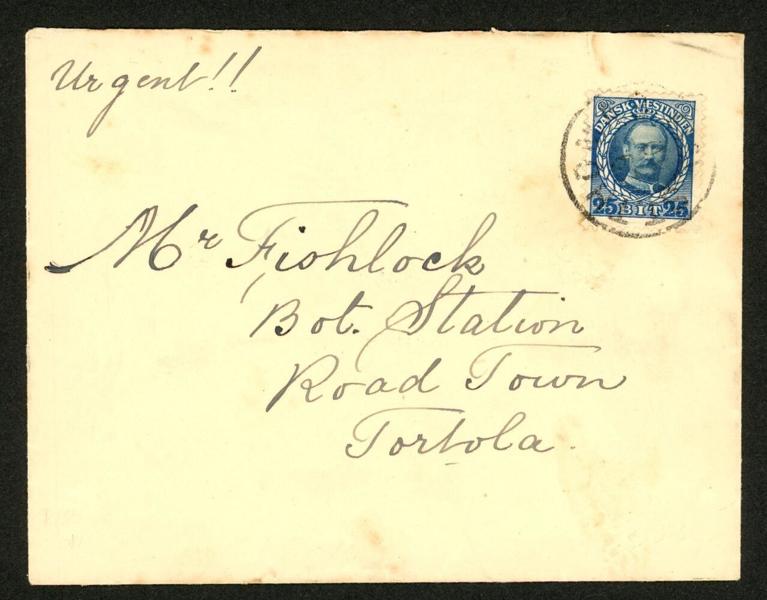 Urgent!!
DANSK VESTINDIEN
25 BIT 25
Mr Fishlock
Bot. Station
Road Town
Tortola.